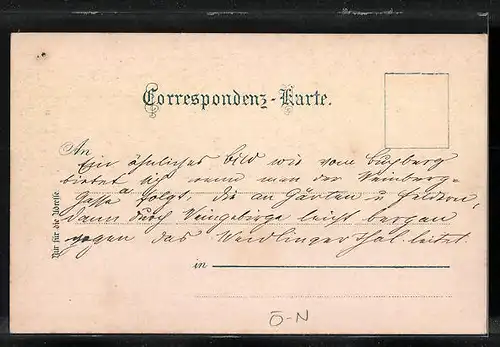 Correspondenz-Karte.
An
Ein ähnliches Bild wie vom Buchberg
bietet sich wenn man der Weinberg-
gasse folgt, die an Gärten u Feldern,
dann durch Weingebirge leicht bergan
gegen das Weidlingerthal leitet.
in
Nur für die Adresse
Ö-N